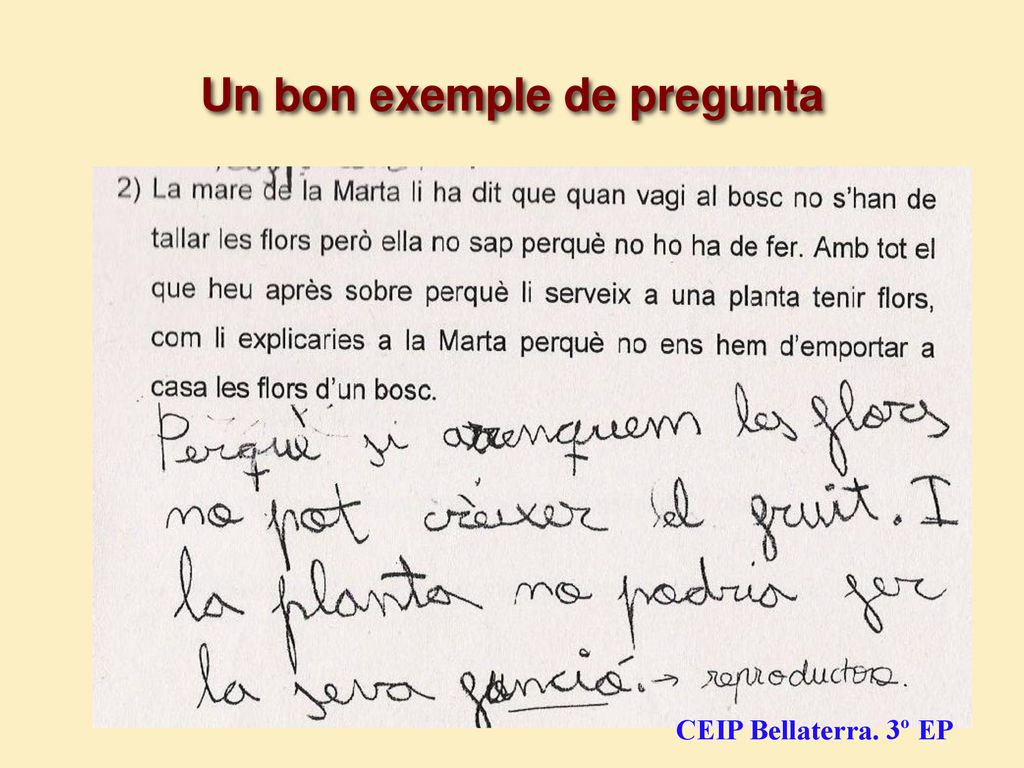 Un bon exemple de pregunta
2) La mare de la Marta li ha dit que quan vagi al bosc no s'han de
tallar les flors però ella no sap perquè no ho ha de fer. Amb tot el
que heu après sobre perquè li serveix a una planta tenir flors,
com li explicaries a la Marta perquè no ens hem d'emportar a
casa les flors d'un bosc.
Perquè si arrenquem les flors
no pot crèixer el fruit. I
la planta no podria fer
la seva funció. → reproductora.
CEIP Bellaterra. 3º EP